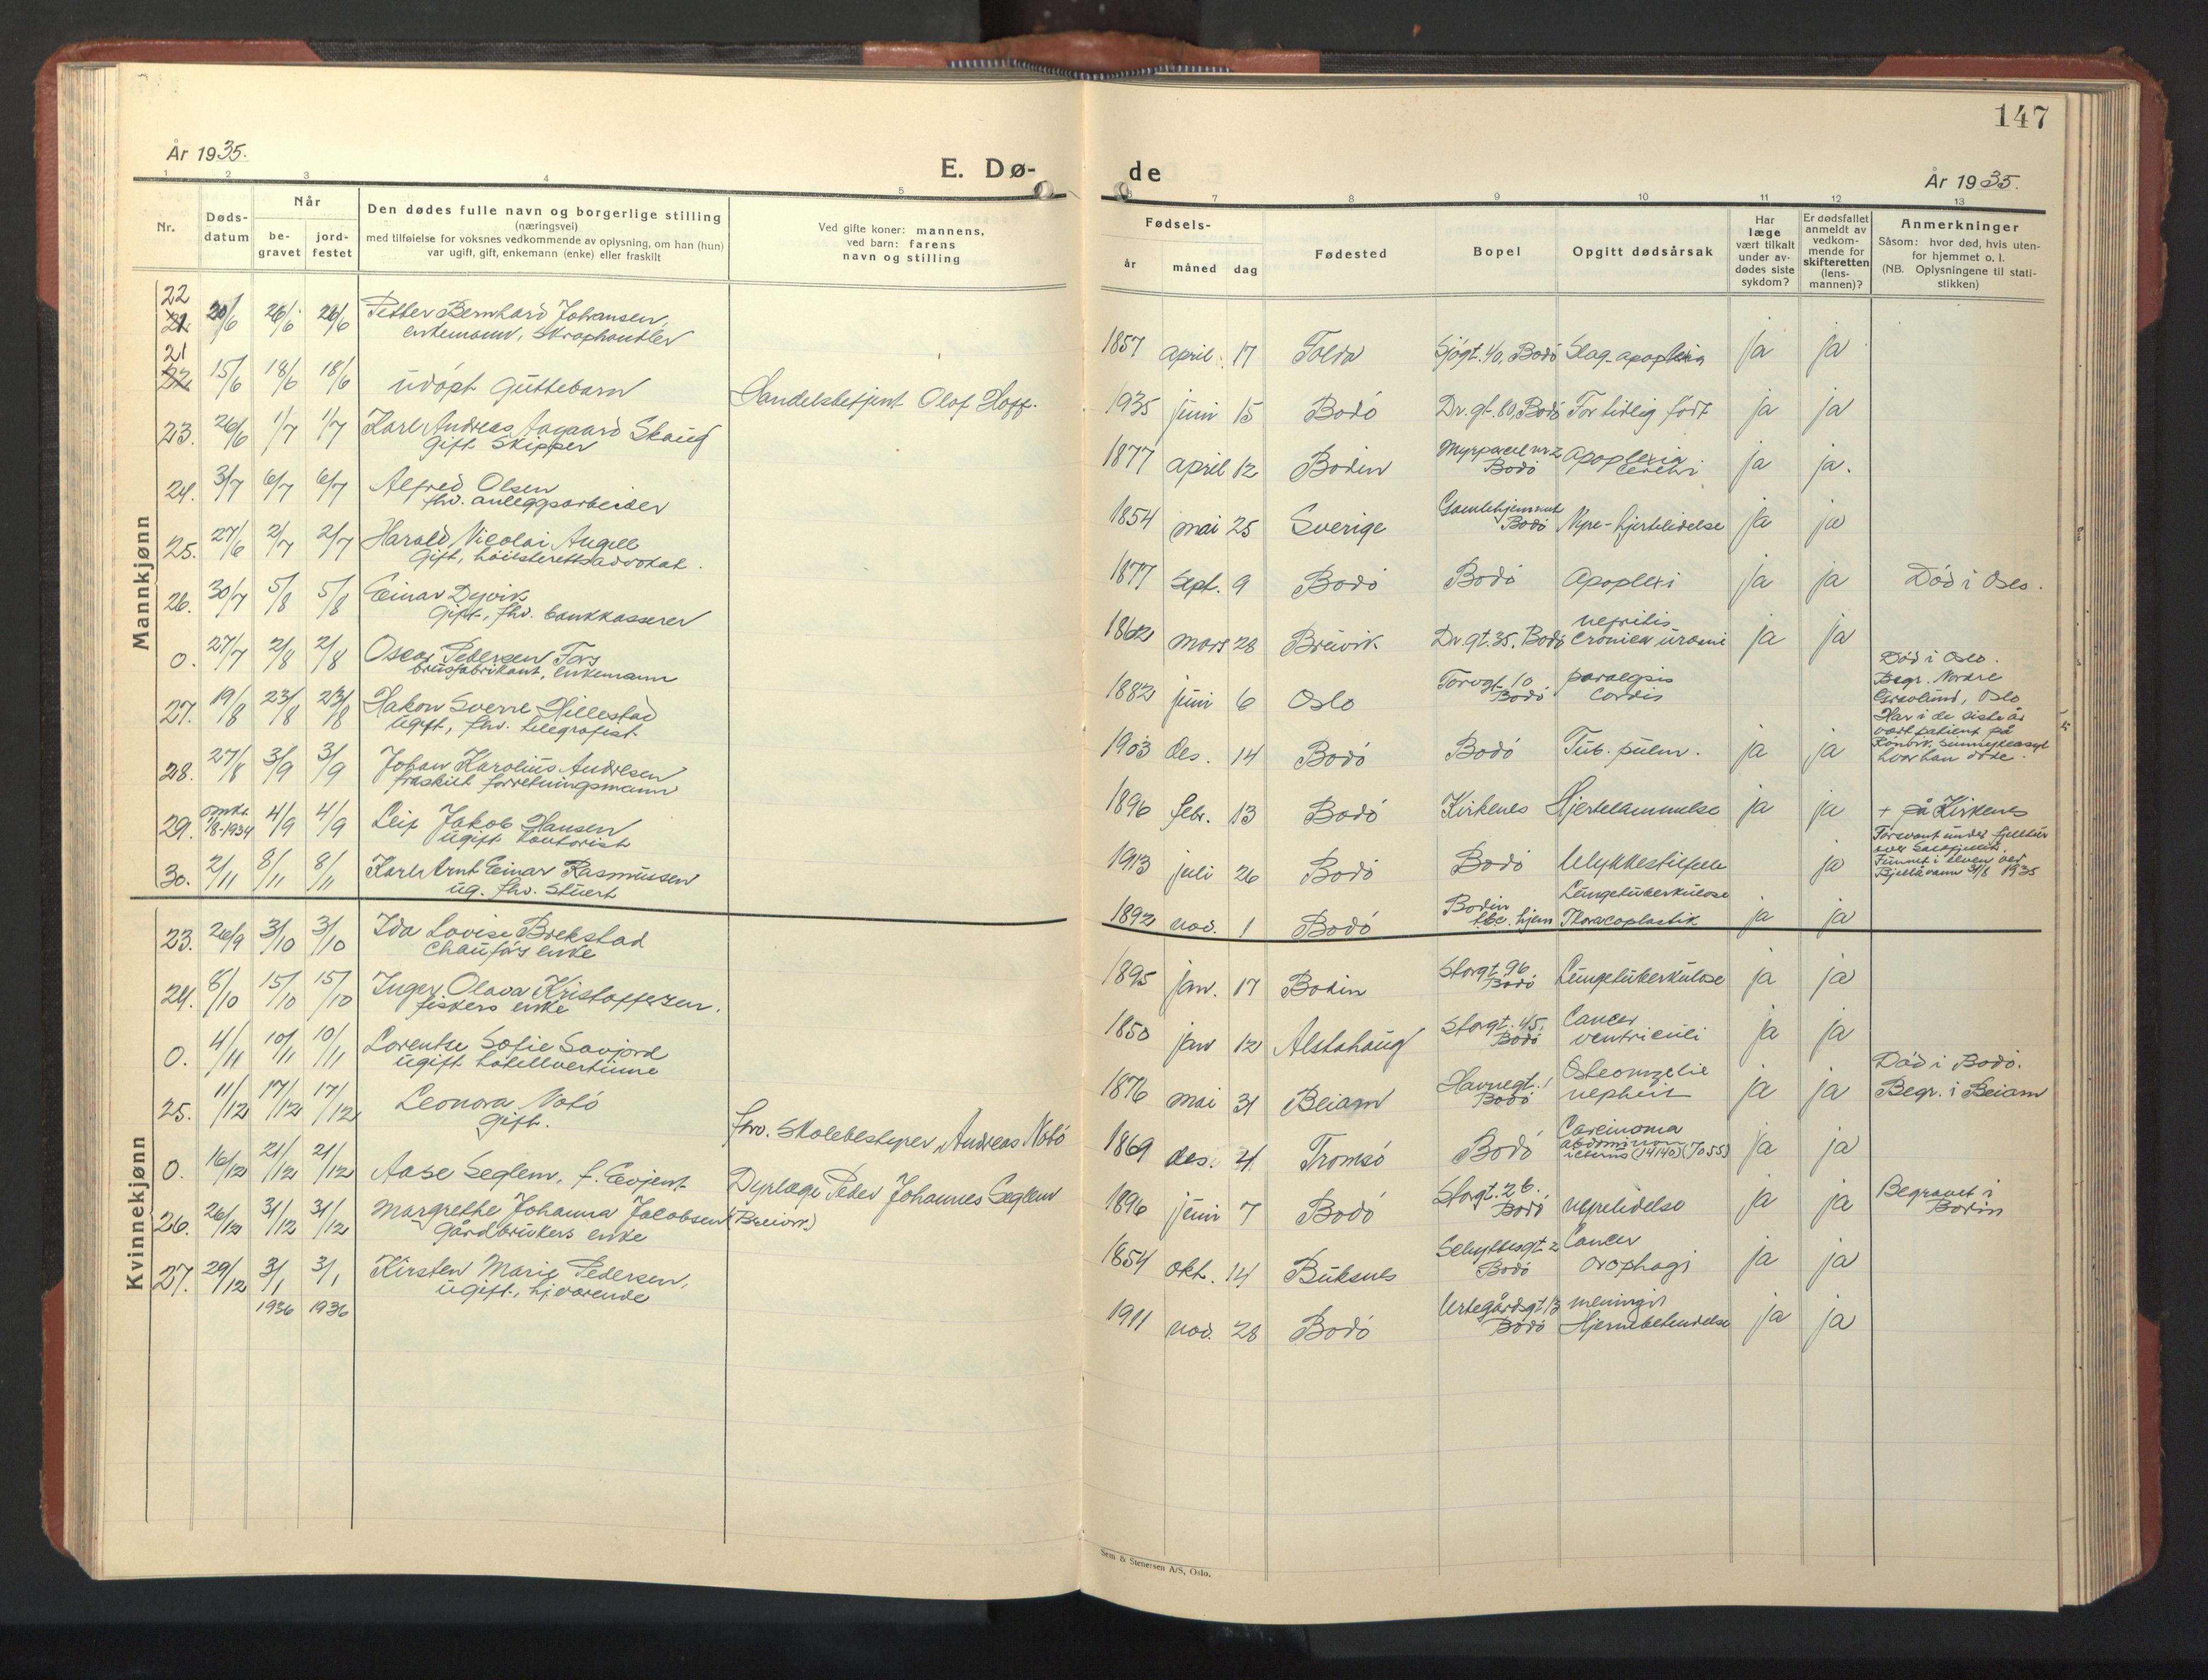 147
År 1935.
E. Dø-
de
År 1935.
1 2 3 4 5
6 7 8 9 10 11 12 13
Nr.
Døds-
datum
Når
be-
gravet
jord-
festet
Den dødes fulle navn og borgerlige stilling
(næringsvei)
med tilføielse for voksnes vedkommende av oplysning, om han (hun)
var ugift, gift, enkemann (enke) eller fraskilt
Ved gifte koner: mannens,
ved barn: farens
navn og stilling
Fødsels-
år måned dag
Fødested
Bopel
Opgitt dødsårsak
Har
læge
vært tilkalt
under av-
dødes siste
sykdom?
Er dødsfallet
anmeldt av
vedkom-
mende for
skifteretten
(lens-
mannen)?
Anmerkninger
Såsom: hvor død, hvis uten-
for hjemmet o. l.
(NB. Oplysningene til stati-
stikken)
Mannkjønn
22 20/6 26/6 26/6 Petter Bernhard Johansen,
21
enkemann, skraphandler
1857 april 17 Folda Sjøgt. 40, Bodö Slag-apoplexia ja ja
21 15/6 18/6 18/6 udöpt guttebarn Handelsbetjent Olaf Hoff.
22
1935 juni 15 Bodö Dr.gt. 80, Bodö For tidlig födt ja ja
23. 26/6 1/7 1/7 Karl Andreas Aagaard Skaug
gift skipper
1877 april 12 Bodin Myrparcel nr 2 Bodö Apoplexia cerebri ja ja.
24. 3/7 6/7 6/7 Alfred Olsen
fhv. anleggsarbeider
1854 mai 25 Sverige Gamlehjemmet Bodö Nyre-hjertelidelse ja ja
25. 27/6 2/7 2/7 Harald Nicolai Angell
gift, höiesterettsadvokat.
1877 sept. 9 Bodö Bodö Apoplexi ja ja Död i Oslo.
26. 30/7 5/8 5/8 Einar Dyvik
gift, fhv. bankkasserer
1862 mars 28 Breivik Dr.gt. 35. Bodö nefritis cronica uræmi ja ja
0. 27/7 2/8 2/8 Oscar Pedersen Fors
brusfabrikant, enkemann
1882 juni 6 Oslo Torvgt. 10 Bodö cordis
Död i Oslo.
Begr. Nordre
Gravlund, Oslo
27. 19/8 23/8 23/8 Hakon Sverre Hillestad
ugift, fhv. telegrafist
1903 des. 14 Bodö Bodö Tub. pulm. ja ja
Har i de siste år
vært patient på
Rönvik sinnsykeasyl
hvor han döde.
28. 27/8 3/9 3/9 Johan Karolius Andresen
fraskilt forretningsmann
1896 febr. 13 Bodö Kirkenes Hjertelammelse ja ja + på Kirkenes
29. omkr. 1/8-1934 4/9 4/9 Leif Jakob Hansen
ugift kontorist
1913 juli 26 Bodö Bodö Ulykkestilfelle ja
Forsvant under fjelltur
over
Funnet i elven ved
Bjellåvann 31/8 1935
30. 2/11 8/11 8/11 Karl Arnt Einar Rasmussen
ug. fhv. stuert
1892 nov. 1 Bodö Bodin tbc. hjem Lungetuberkulose Thoracoplastik ja ja
Kvinnekjønn
23. 26/9 3/10 3/10 Ida Lovise Brekstad
chaufförs enke
1895 jan. 17 Bodin Storgt 96 Bodö Lungetuberkulose ja ja
24. 8/10 15/10 15/10 Inger Olava Kristoffersen.
fiskers enke
1850 jan 12 Alstahaug Storgt. 45, Bodö Cancer ventriculi ja ja
0. 4/11 10/11 10/11 Lorentse Sofie Savjord
ugift hotellvertinne
1876 mai 31 Beiarn Havnegt. 1 Bodö ja ja
Död i Bodö.
Begr. i Beiarn
25. 11/12 17/12 17/12 Leonora Notö
gift.
fhv. skolebestyrer Andreas Notö
1869 des. 4 Tromsö Bodö Carcinoma ja ja
0. 16/12 21/12 21/12 Aase Seglem, f. Evjent Dyrlæge Peder Johannes Seglem
1896 juni 7 Bodö Storgt. 26. Bodö nyrelidelse ja ja
Begravet i
Bodin
26. 26/12 31/12 31/12 Margrethe Johanna Jakobsen (Breivik)
gårdbrukers enke
1854 okt. 14 Buksnes Bodö Cancer ja ja
27. 29/12 3/1 3/1 Kirsten Marie Pedersen,
1936 1936
ugift, hjværende
1911 nov. 28 Bodö Urtegårdsgt 13 Bodö Hjernebetendelse ja ja
Sem & Stenersen A/S, Oslo.